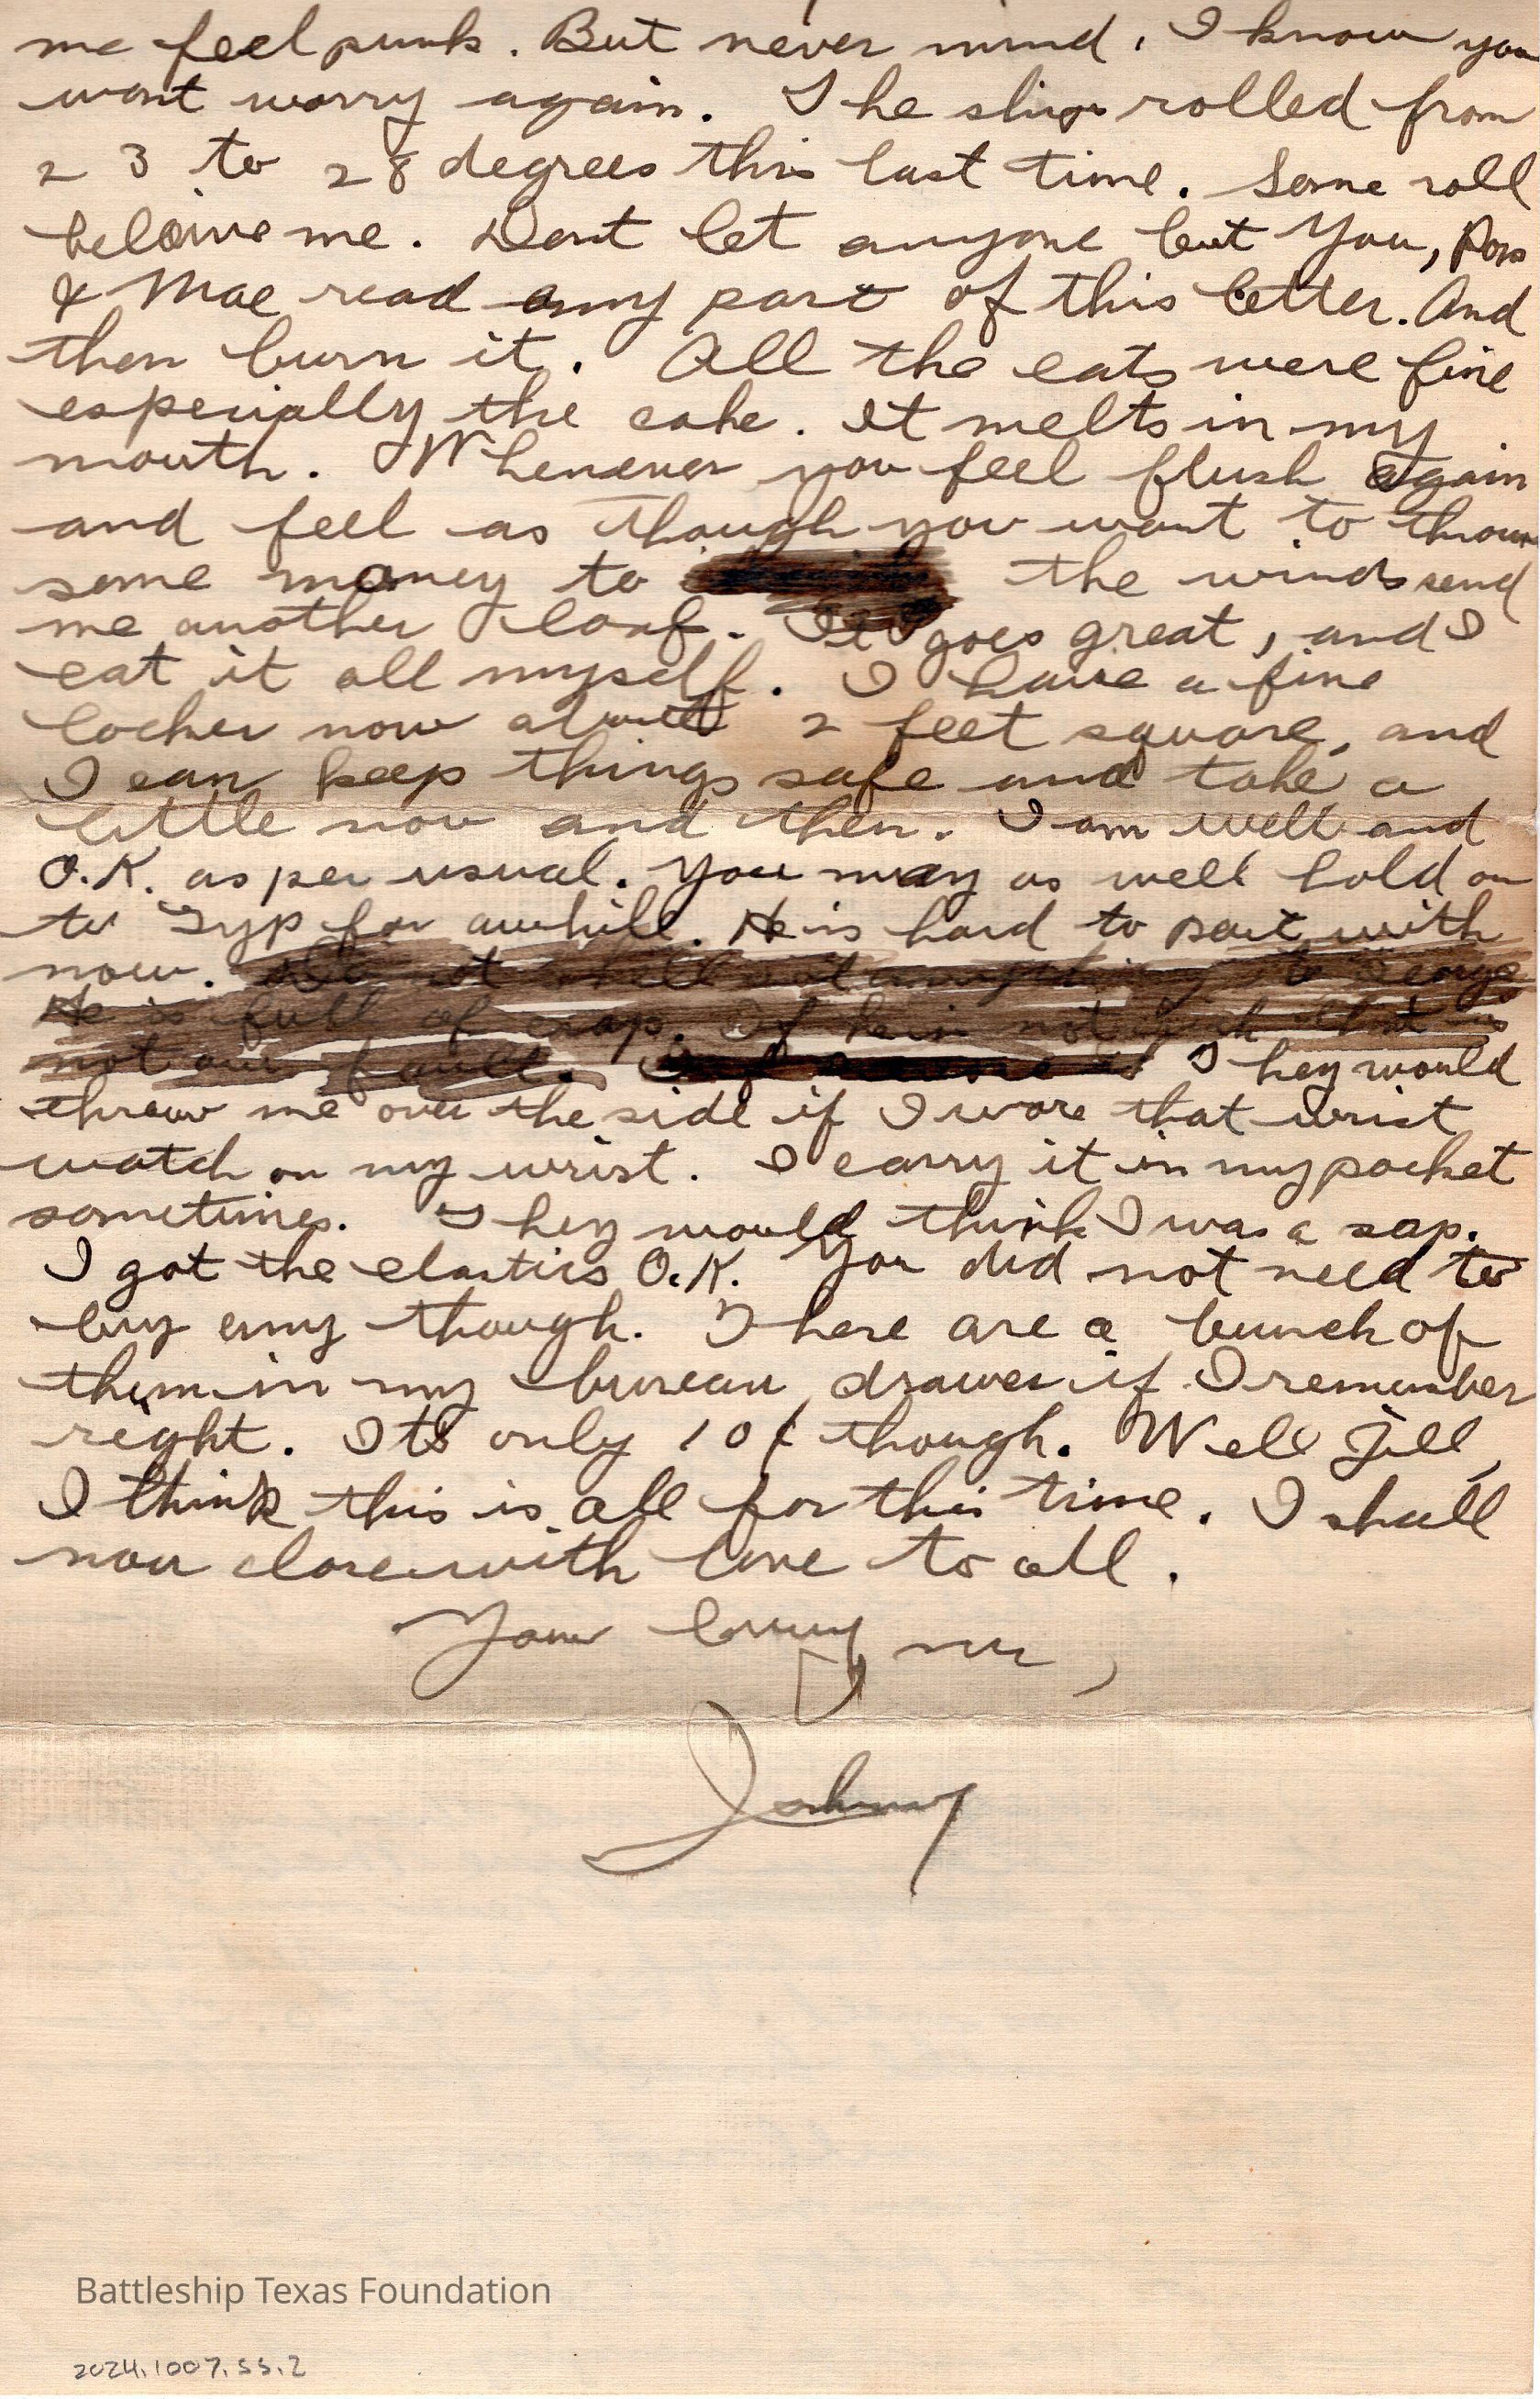 me feel punk. But never mind, I know you
wont worry again. The ship rolled from
23 to 28 degrees this last time. Some roll
beleive me. Dont let anyone but you, Pop
& Mae read any part of this letter. And
then burn it. All the eats were fine
especially the cake. It melts in my
mouth. Whenever you feel flush again
and feel as though you want to throw
some money to the winds send
me another loaf. It goes great, and I
eat it all myself. I have a fine
locker now about 2 feet square, and
I can keep things safe and take a
little now and then. I am well and
O.K. as per usual. You may as well hold on
to Gyp for awhile. He is hard to part with
now. not tell anything to George
He is full of crap. If he is not that is
not our fault. They would
throw me over the side if I wore that wrist
watch on my wrist. I carry it in my pocket
sometimes. They would think I was a sap.
I got the elastics O.K. You did not need to
buy any though. There are a bunch of
them in my bureau drawer if I remember
right. Its only 10¢ though. Well Jill,
I think this is all for this time. I shall
now close with love to all.
Your loving
Johnny
Battleship Texas Foundation
2024.1007.55.2